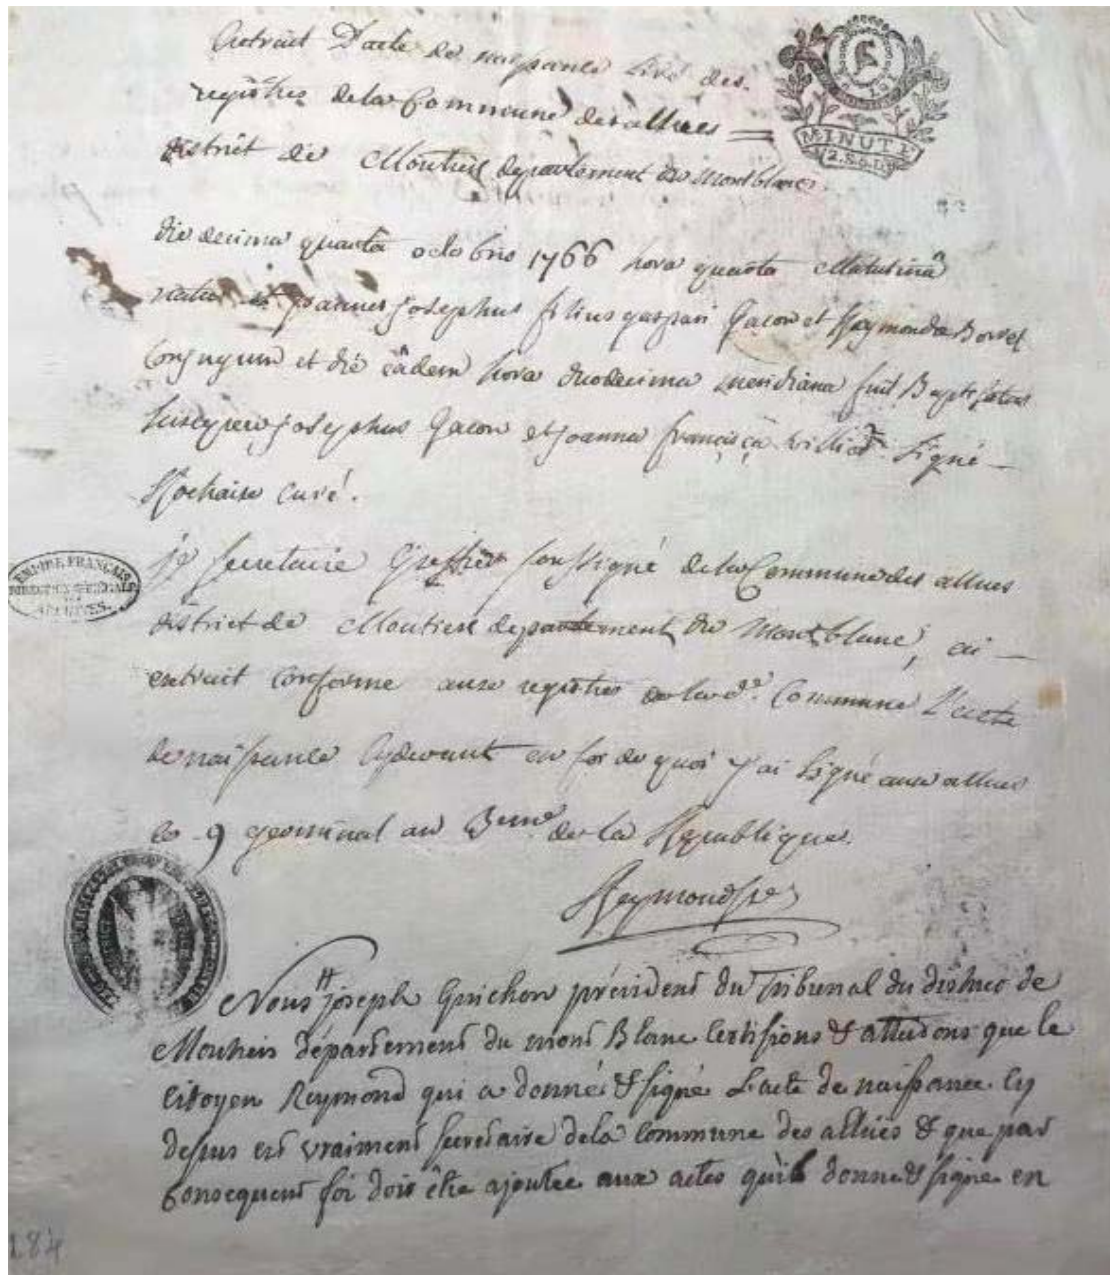 Extrait D'acte de naissance tiré des
registres de la Commune des allues
district de Moutiers departement du Montblanc
MINUTE
12.S.6.D.
die decima quarta octobris 1766 hora quarta Matutina
natus est joannes josephus filius gaspari Gacon et Reymonda Borrel
Conjugum et die eâdem hora duodecima meridiana fuit Baptisatus
Suscepere josephus Gacon et joanna françisca Signé
curé.
EMPIRE FRANÇAIS
DIRECTION GÉNÉRALE
DES
ARCHIVES.
je Secretaire Greffier soussigné de la Commune des allues
district de Moutiers departement du Montblanc, ai
extrait conforme aux registres de la de. Commune L'acte
de naissance Cydevant en foi de quoi j'ai signé aux allues
le 9 germinal an 3eme de la Republique.
Reymond
Nous joseph Guichon président du Tribunal du district de
Moutiers département du mont Blanc Certifions & attestons que le
Citoyen Reymond qui a donné & signé L'acte de naissance Cy
dessus est vraiment secretaire de la commune des allües & que par
Consequent foi doit être ajoutée aux actes qu'il donne & signe en
184